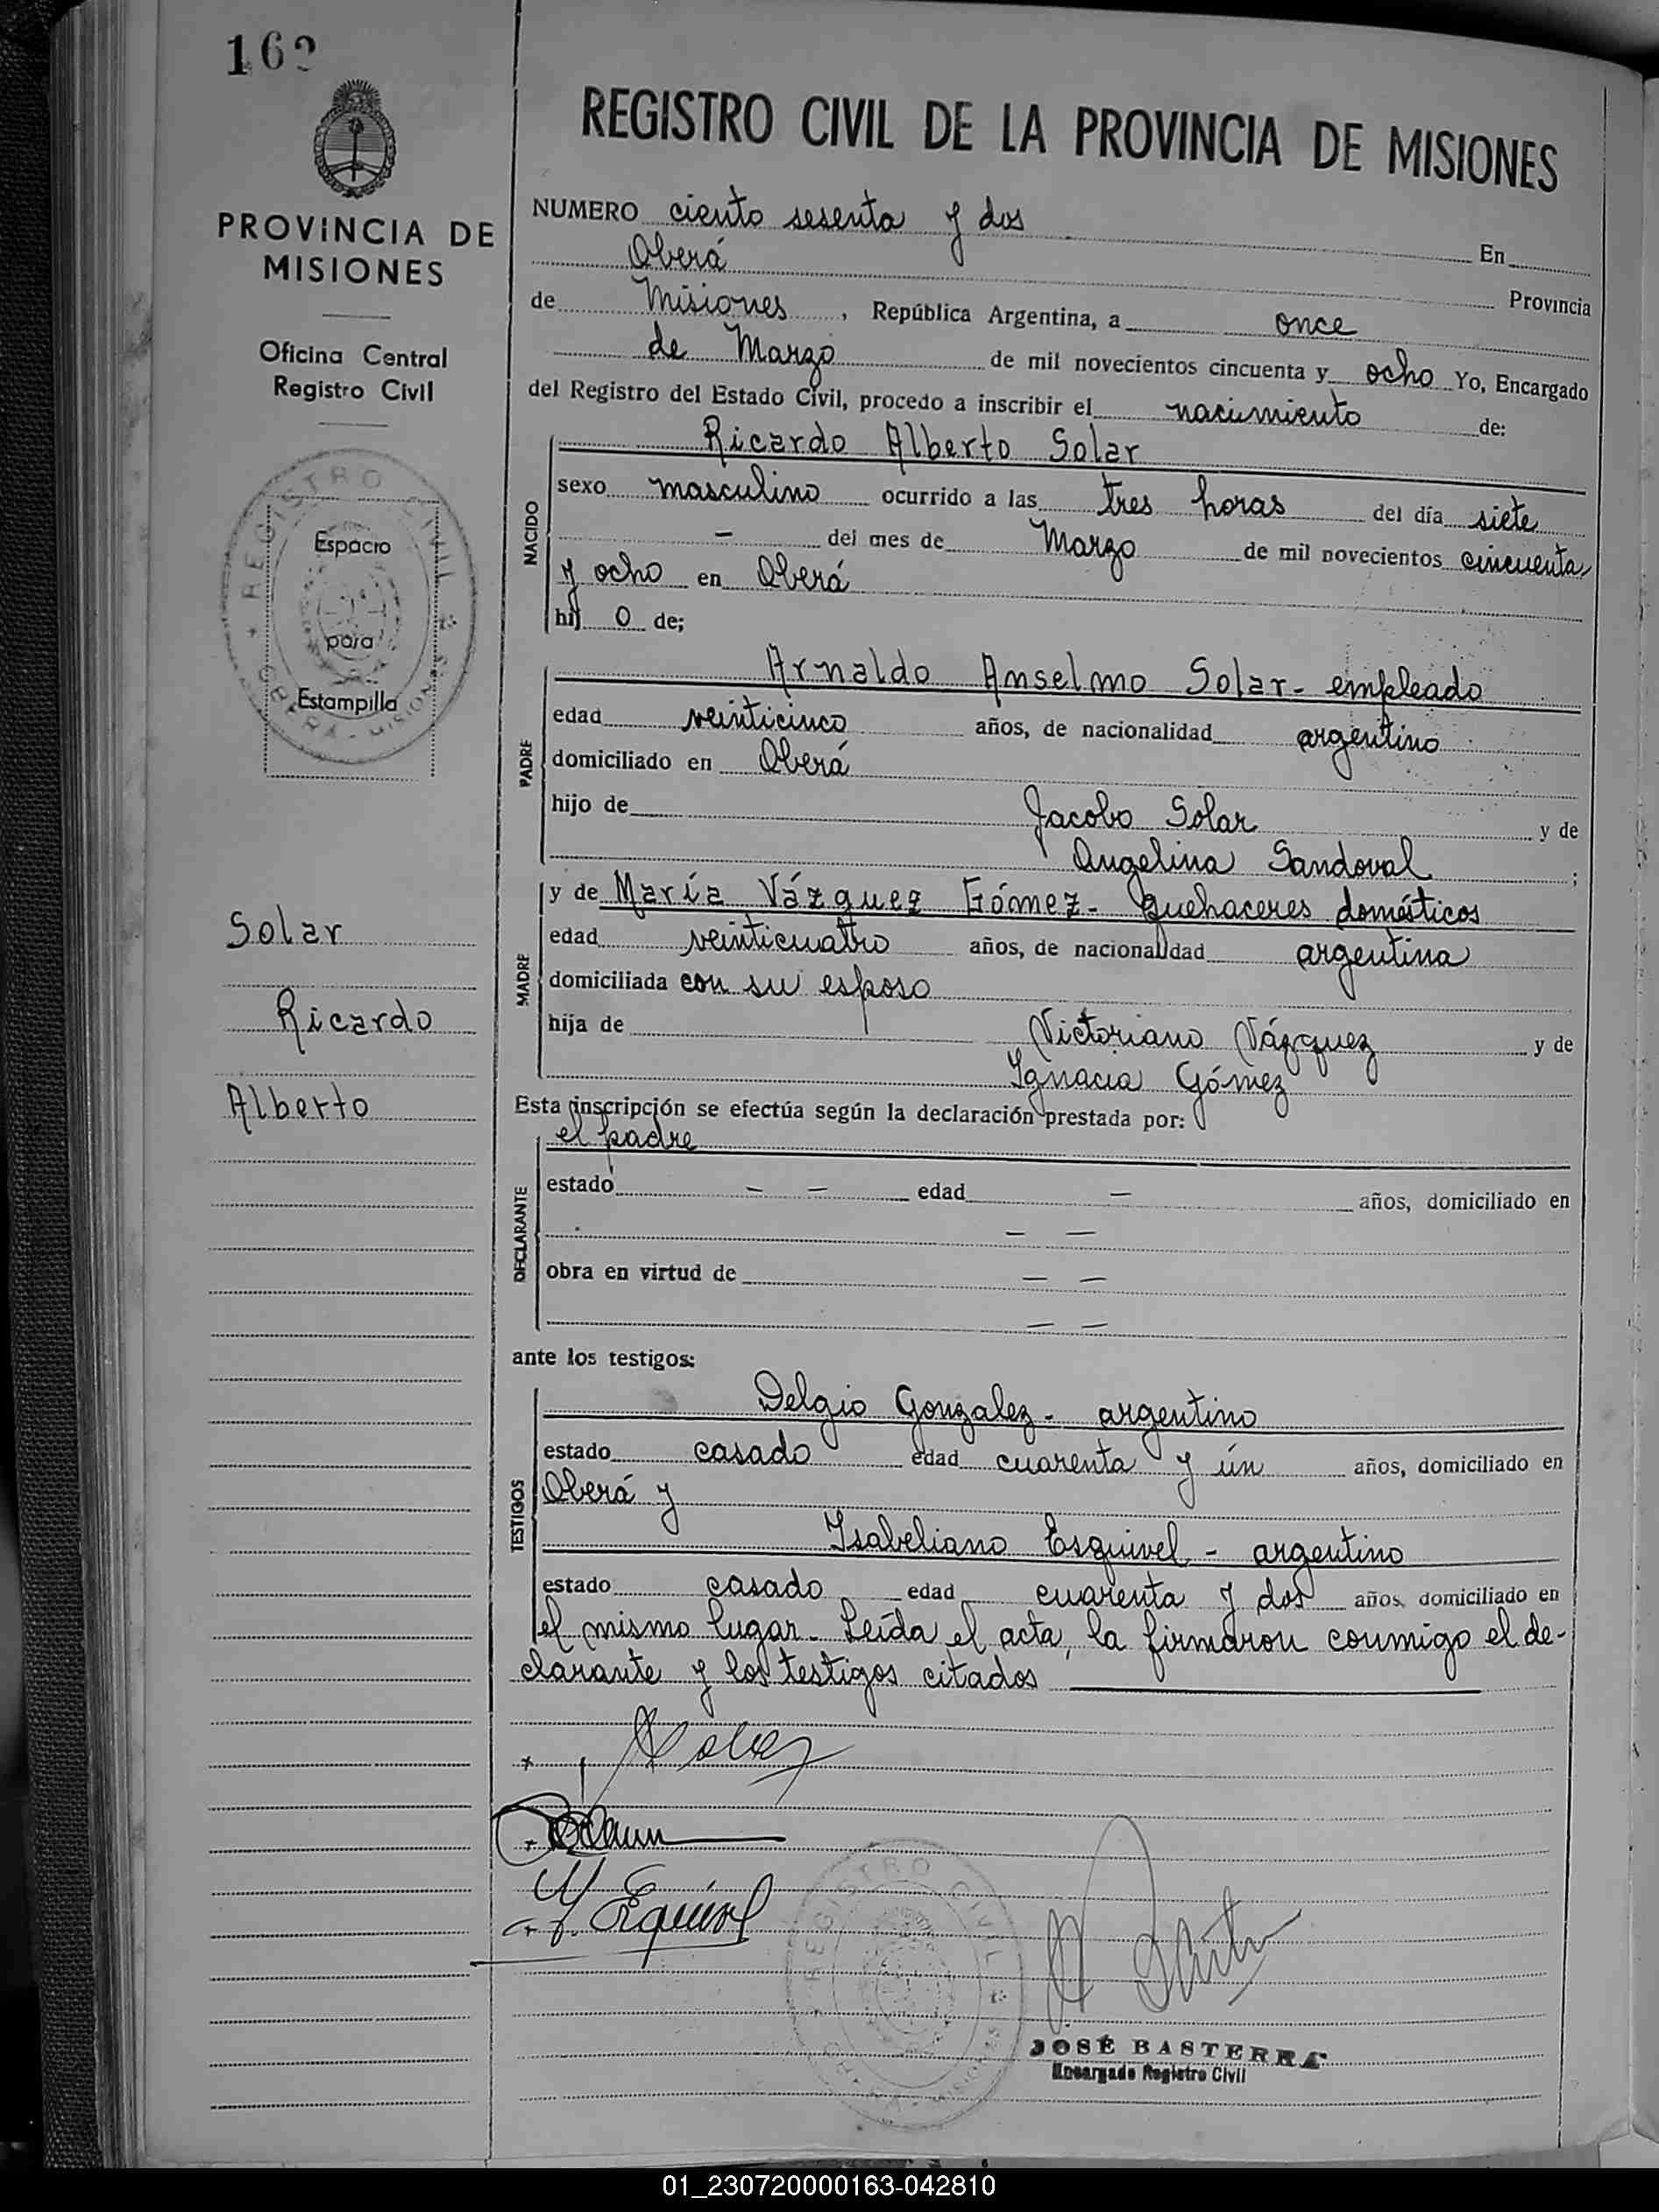 162
PROVINCIA DE
MISIONES
Oficina Central
Registro Civil
REGISTRO CIVIL
Espacio
para
Estampilla
OBERÁ - MISIONES
Solar
Ricardo
Alberto
REGISTRO CIVIL DE LA PROVINCIA DE MISIONES
NUMERO ciento sesenta y dos En
Oberá Provincia
de Misiones, República Argentina, a once
de Marzo de mil novecientos cincuenta y ocho Yo, Encargado
del Registro del Estado Civil, procedo a inscribir el nacimiento de:
NACIDO
Ricardo Alberto Solar
sexo masculino ocurrido a las tres horas del día siete
- del mes de Marzo de mil novecientos cincuenta
y ocho en Oberá
hij o de;
PADRE
Arnaldo Anselmo Solar - empleado
edad veinticinco años, de nacionalidad argentino
domiciliado en Oberá
hijo de Jacobo Solar y de
Angelina Sandoval ;
MADRE
y de María Vázquez Gómez - quehaceres domésticos
edad veinticuatro años, de nacionalidad argentina
domiciliada con su esposo
hija de Victoriano Vázquez y de
Ignacia Gómez
Esta inscripción se efectúa según la declaración prestada por:
DECLARANTE
el padre
estado - - edad - años, domiciliado en
- -
obra en virtud de - -
- -
ante los testigos:
TESTIGOS
Delgio Gonzalez - argentino
estado casado edad cuarenta y ún años, domiciliado en
Oberá y
Isabeliano Esquivel - argentino
estado casado edad cuarenta y dos años domiciliado en
el mismo lugar - Leída el acta, la firmaron conmigo el de-
clarante y los testigos citados
Esquivel
REGISTRO CIVIL
JOSÉ BASTERRA
Encargado Registro Civil
01_230720000163-042810